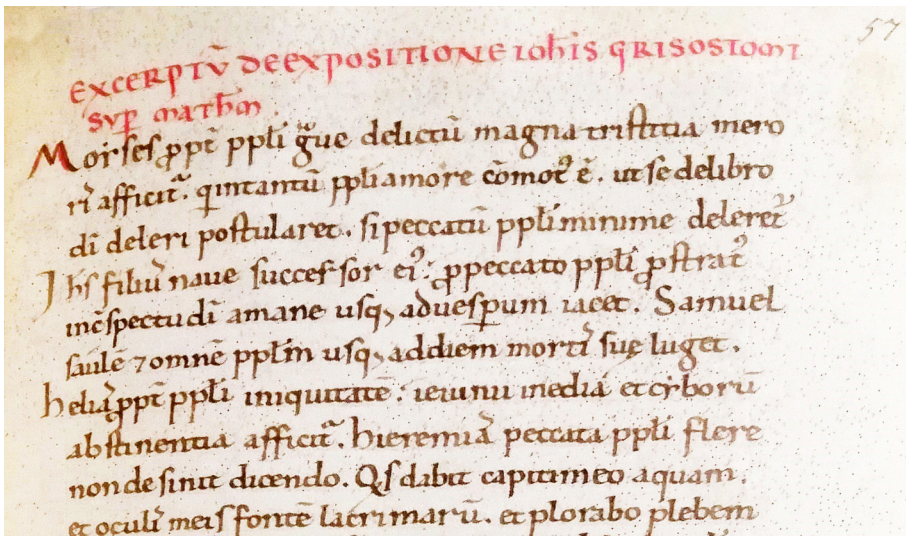 57
EXCERPTŪ DE EXPOSITIONE IOĥIS QRISOSTOMI
SUP̄ MATĥM
Moyses ꝓpt̄ ppłi gͣue delictū magna tristitia mero
ri afficit᷑. qͥ intantū ppłi amore cōmotꝰ ē. ut se delibro
dī deleri postularet. si peccatū ppłi minime deleret᷑
Iħs filiꝰ naue successor eiꝰ. ꝓpeccato ppłi ꝓstratꝰ
incspectu dī amane usq; aduesꝑum iacet. Samuel
saulē ⁊ omnē ppłm usq; addiem mortis suę luget.
helias ꝓpt̄ ppłi iniquitatē. ieiuniū media et cyborū
abstinentia afficit᷑. hieremias peccata ppłi flere
non desinit dicendo. Qs dabit capiti meo aquam.
et oculis meis fontē lacrimarū. et plorabo plebem